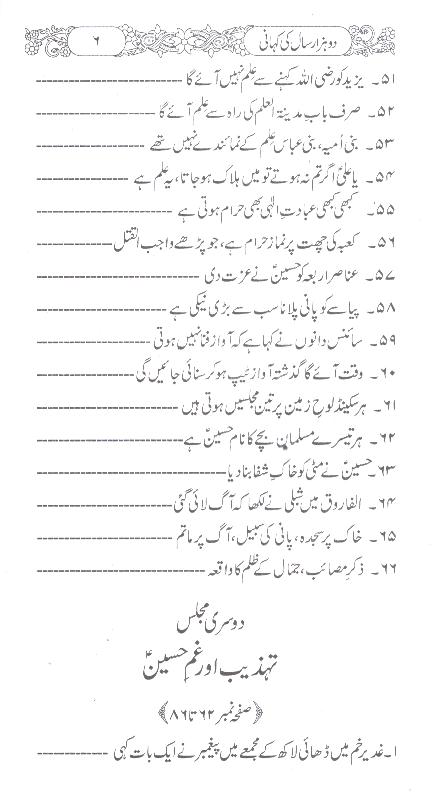 دو ہزار سال کی کہانی
۶
۵۱۔ یزید کو رضی اللہ کہنے سے علم نہیں آئے گا
۵۲۔ صرف بابِ مدینۃ العلم کی راہ سے علم آئے گا
۵۳۔ بنی اُمیہ، بنی عباس علم کے نمائندے نہیں تھے
۵۴۔ یا علیؑ اگر تم نہ ہوتے تو میں ہلاک ہو جاتا، یہ علم ہے
۵۵۔ کبھی کبھی عبادتِ الٰہی بھی حرام ہوتی ہے
۵۶۔ کعبہ کی چھت پر نماز حرام ہے، جو پڑھے واجب القتل
۵۷۔ عناصرِ اربعہ کو حسینؑ نے عزت دی
۵۸۔ پیاسے کو پانی پلانا سب سے بڑی نیکی ہے
۵۹۔ سائنس دانوں نے کہا ہے کہ آواز فنا نہیں ہوتی
۶۰۔ وقت آئے گا گذشتہ آواز ٹیپ ہو کر سنائی جائیں گی
۶۱۔ ہر سیکنڈ لوحِ زمین پر تین مجلسیں ہوتی ہیں
۶۲۔ ہر تیسرے مسلمان بچے کا نام حسینؑ ہے
۶۳۔ حسینؑ نے مٹی کو خاکِ شفا بنا دیا
۶۴۔ الفاروق میں شبلی نے لکھا کہ آگ لائی گئی
۶۵۔ خاک پر سجدہ، پانی کی سبیل، آگ پر ماتم
۶۶۔ ذکرِ مصائب، جمال کے ظلم کا واقعہ
دوسری مجلس
تہذیب اور غمِ حسینؑ
﴿صفحہ نمبر ۶۲ تا ۸۶﴾
۱۔ غدیر خم میں ڈھائی لاکھ کے مجمعے میں پیغمبرؐ نے ایک بات کہی